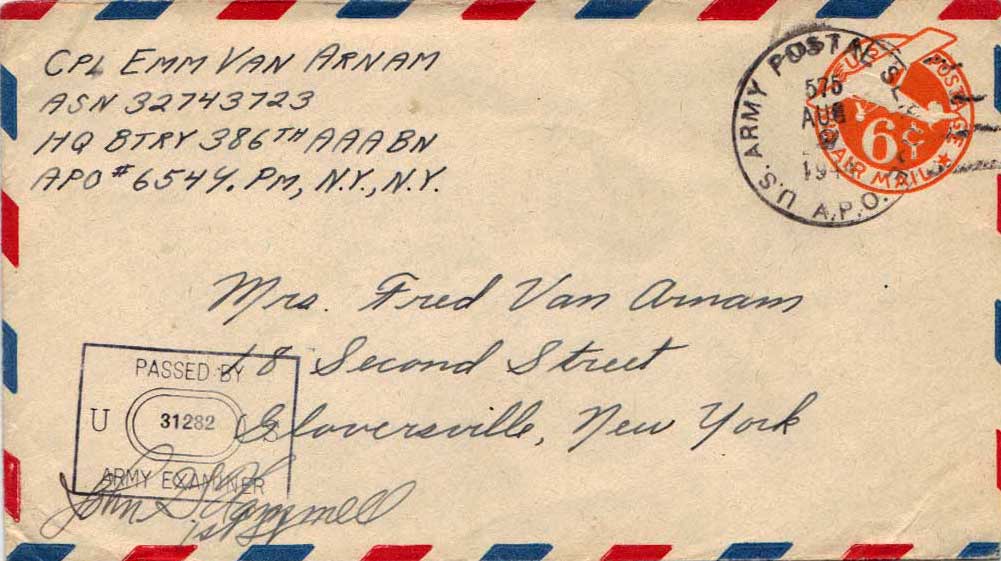 CPL EMM VAN ARNAM
ASN 32743723
HQ BTRY 386TH AAABN
APO #654%. PM, N.Y., N.Y.
U.S. ARMY POSTAL
A.P.O.
575
AUG
194
U.S. POSTAGE
6¢
AIR MAIL
Mrs. Fred Van Arnam
18 Second Street
Gloversville, New York
PASSED BY
U 31282 S
ARMY EXAMINER
John